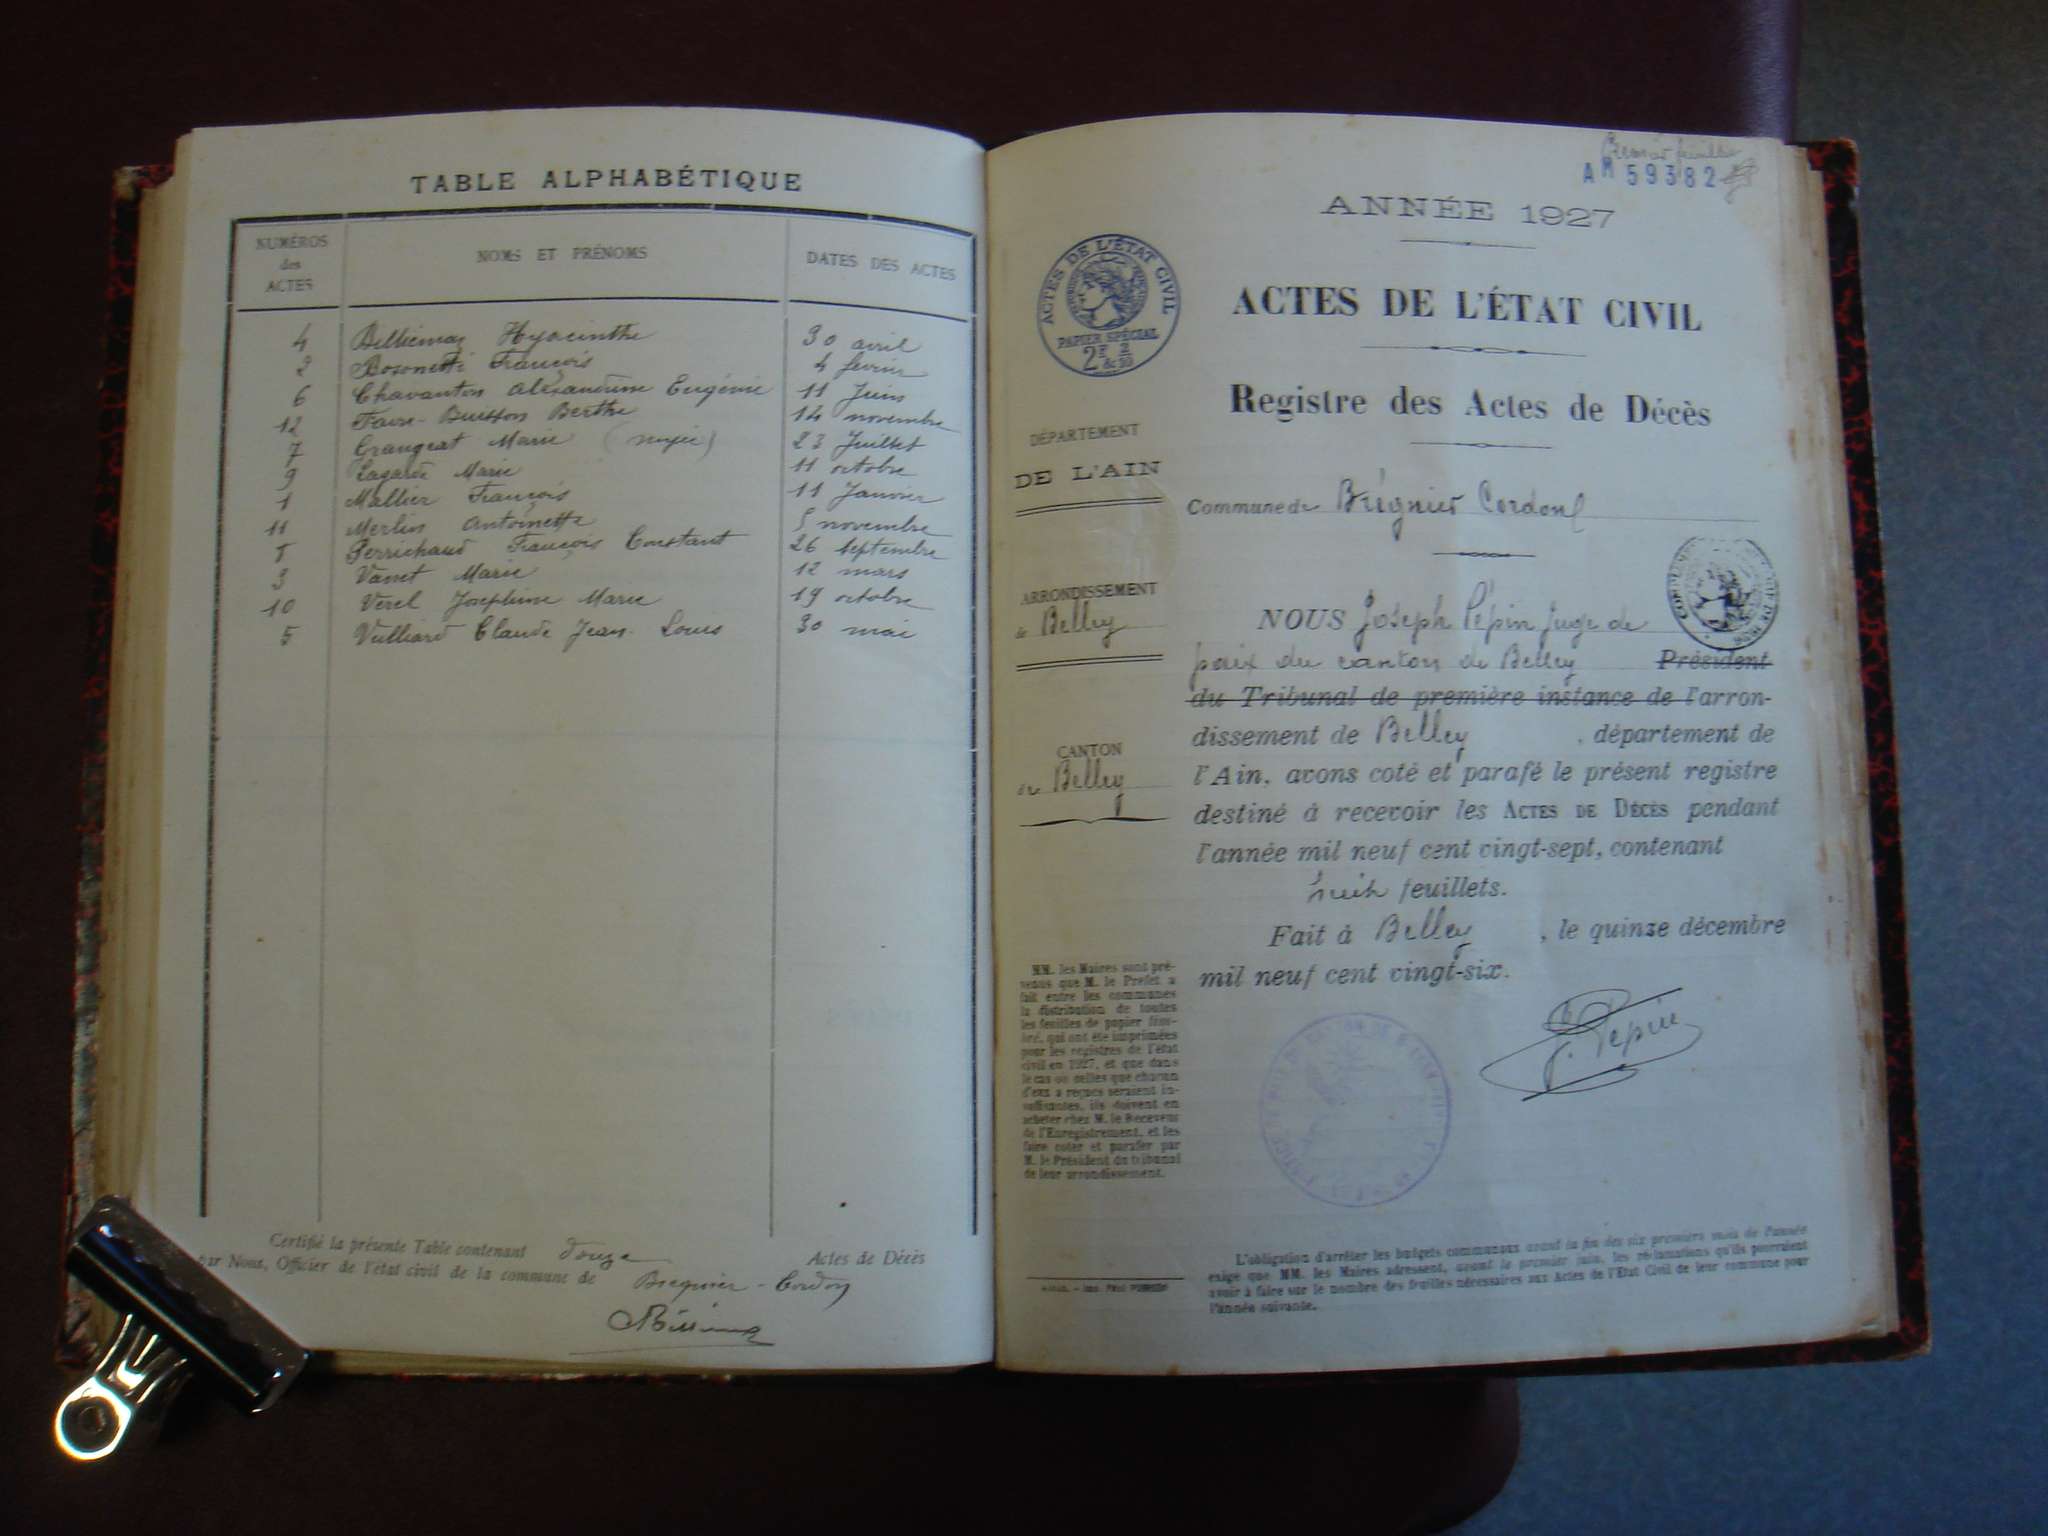 TABLE ALPHABÉTIQUE
NUMÉROS des ACTES
NOMS ET PRÉNOMS
DATES DES ACTES
4 Hyacinthe 30 avril
2 Bosonetti François 4 février
6 Chavanton Alexandrine Eugénie 11 Juin
12 Favre-Buisson Berthe 14 novembre
7 Grangeat Marie 23 Juillet
9 Lagarde Marie 11 octobre
1 Mallier François 11 Janvier
11 Merlin Antoinette 5 novembre
8 Perrichaud François Constant 26 septembre
3 Marie 12 mars
10 Verel Joséphine Marie 19 octobre
5 Vulliard Claude Jean-Louis 30 mai
Certifié la présente Table contenant douze Actes de Décès
par Nous, Officier de l'état civil de la commune de Bregnier-Cordon
Premier feuillet
AM 59382
ANNÉE 1927
ACTES DE L'ÉTAT CIVIL
PAPIER SPÉCIAL
2F
ACTES DE L'ÉTAT CIVIL
Registre des Actes de Décès
DÉPARTEMENT
DE L'AIN
Commune de Brégnier Cordon
ARRONDISSEMENT
de Belley
CANTON
de Belley
NOUS Joseph Pépin Juge de
paix du canton de Belley Président
du Tribunal de première instance de l'arron-
dissement de Belley, département de
l'Ain, avons coté et parafé le présent registre
destiné à recevoir les ACTES DE DÉCÈS pendant
l'année mil neuf cent vingt-sept, contenant
huit feuillets.
Fait à Belley, le quinze décembre
mil neuf cent vingt-six.
J. Pépin
MM. les Maires sont pré-
venus que M. le Préfet a
fait entre les communes
la distribution de toutes
les feuilles de papier tim-
bré, qui ont été imprimées
pour les registres de l'état
civil en 1927, et que dans
le cas où celles que chacun
d'eux a reçues seraient in-
suffisantes, ils doivent en
acheter chez M. le Receveur
de l'Enregistrement, et les
faire coter et parafer par
M. le Président du tribunal
de leur arrondissement.
L'obligation d'arrêter les budgets communaux avant la fin des six premiers mois de l'année
exige que MM. les Maires adressent, avant le premier juin, les réclamations qu'ils pourraient
avoir à faire sur le nombre des feuilles nécessaires aux Actes de l'Etat Civil de leur commune pour
l'année suivante.